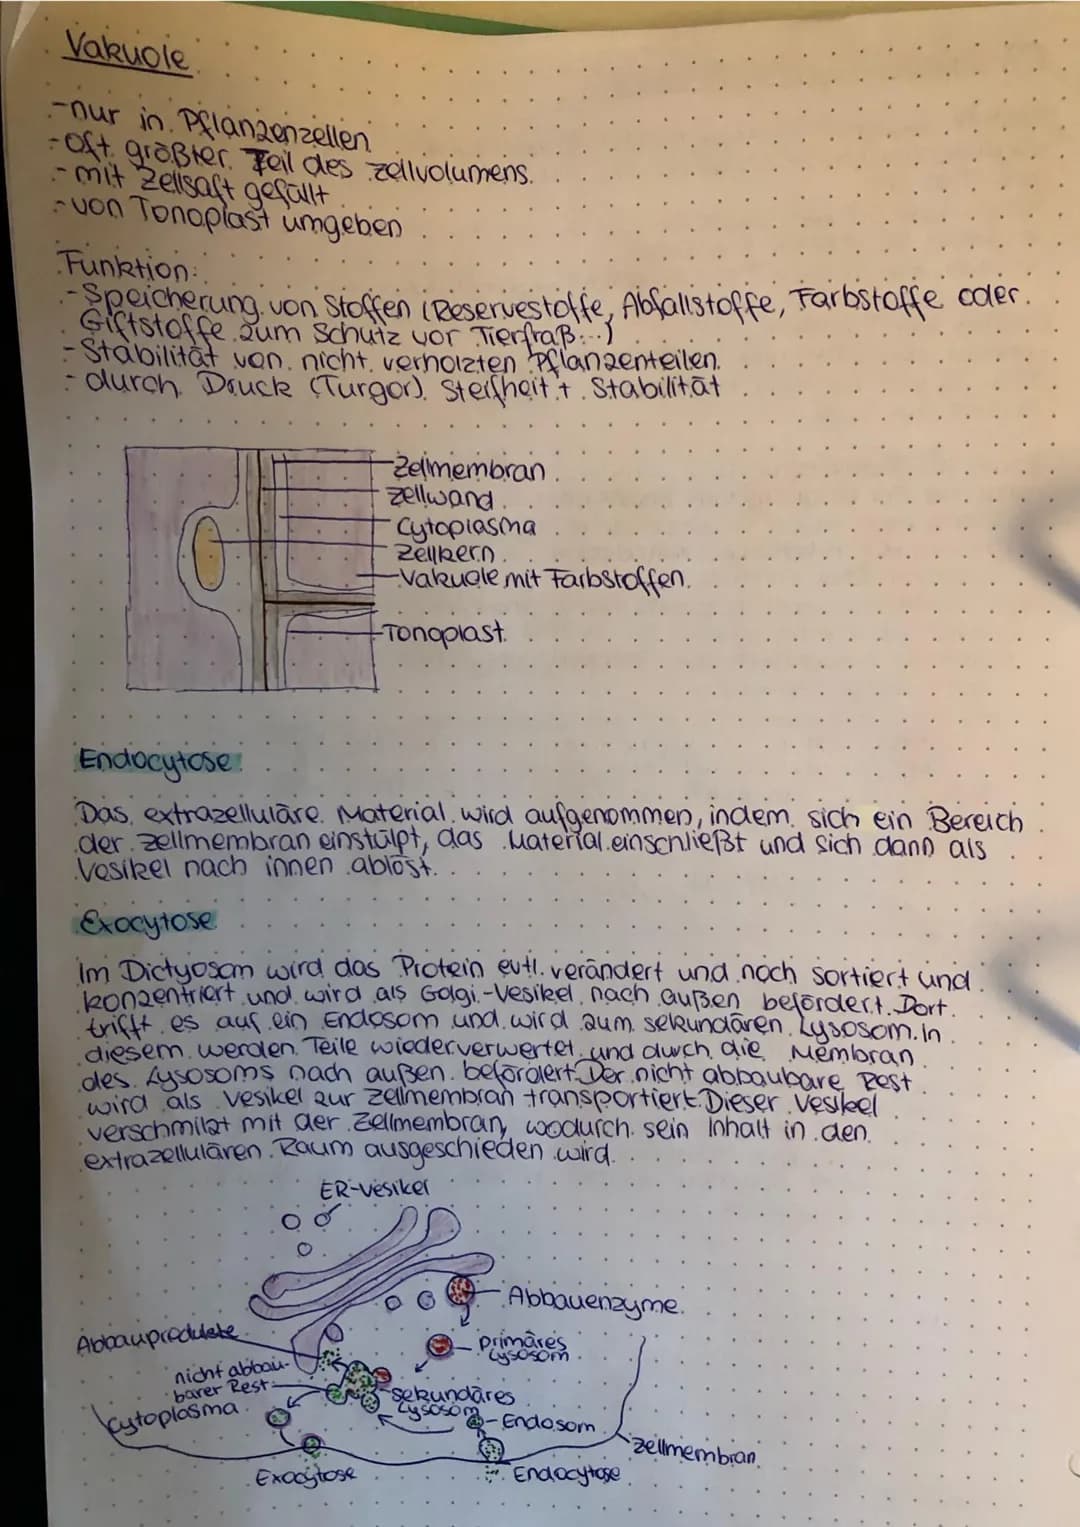 Vakuole
-nur in Pflanzenzellen
-oft größter Teil des Zellvolumens.
-mit Zellsaft gefüllt
-von Tonoplast umgeben
Funktion:
-Speicherung von Stoffen (Reservestoffe, Abfallstoffe, Farbstoffe oder
Giftstoffe zum Schutz vor Tierfraß...)
-Stabilität von nicht verholzten Pflanzenteilen
-durch Druck (Turgor) Steifheit + Stabilität
Zellmembran
Zellwand
Cytoplasma
Zellkern
Vakuole mit Farbstoffen
Tonoplast
Endocytose:
Das extrazelluläre Material wird aufgenommen, indem sich ein Bereich
der Zellmembran einstülpt, das Material einschließt und sich dann als
Vesikel nach innen ablöst.
Exocytose
Im Dictyosom wird das Protein evtl. verändert und noch sortiert und
konzentriert und wird als Golgi-Vesikel nach außen befördert. Dort
trifft es auf ein Endosom und wird zum sekundären Lysosom. In
diesem werden Teile wiederverwertet und durch die Membran
des Lysosoms nach außen befördert. Der nicht abbaubare Rest
wird als Vesikel zur Zellmembran transportiert. Dieser Vesikel
verschmilzt mit der Zellmembran, wodurch sein Inhalt in den
extrazellulären Raum ausgeschieden wird.
ER-Vesikel
Abbauenzyme
Abbauprodukte
primäres
Lysosom
nicht abbau-
barer Rest
sekundäres
Lysosom
Cytoplasma
Endosom
Zellmembran
Exocytose
Endocytose